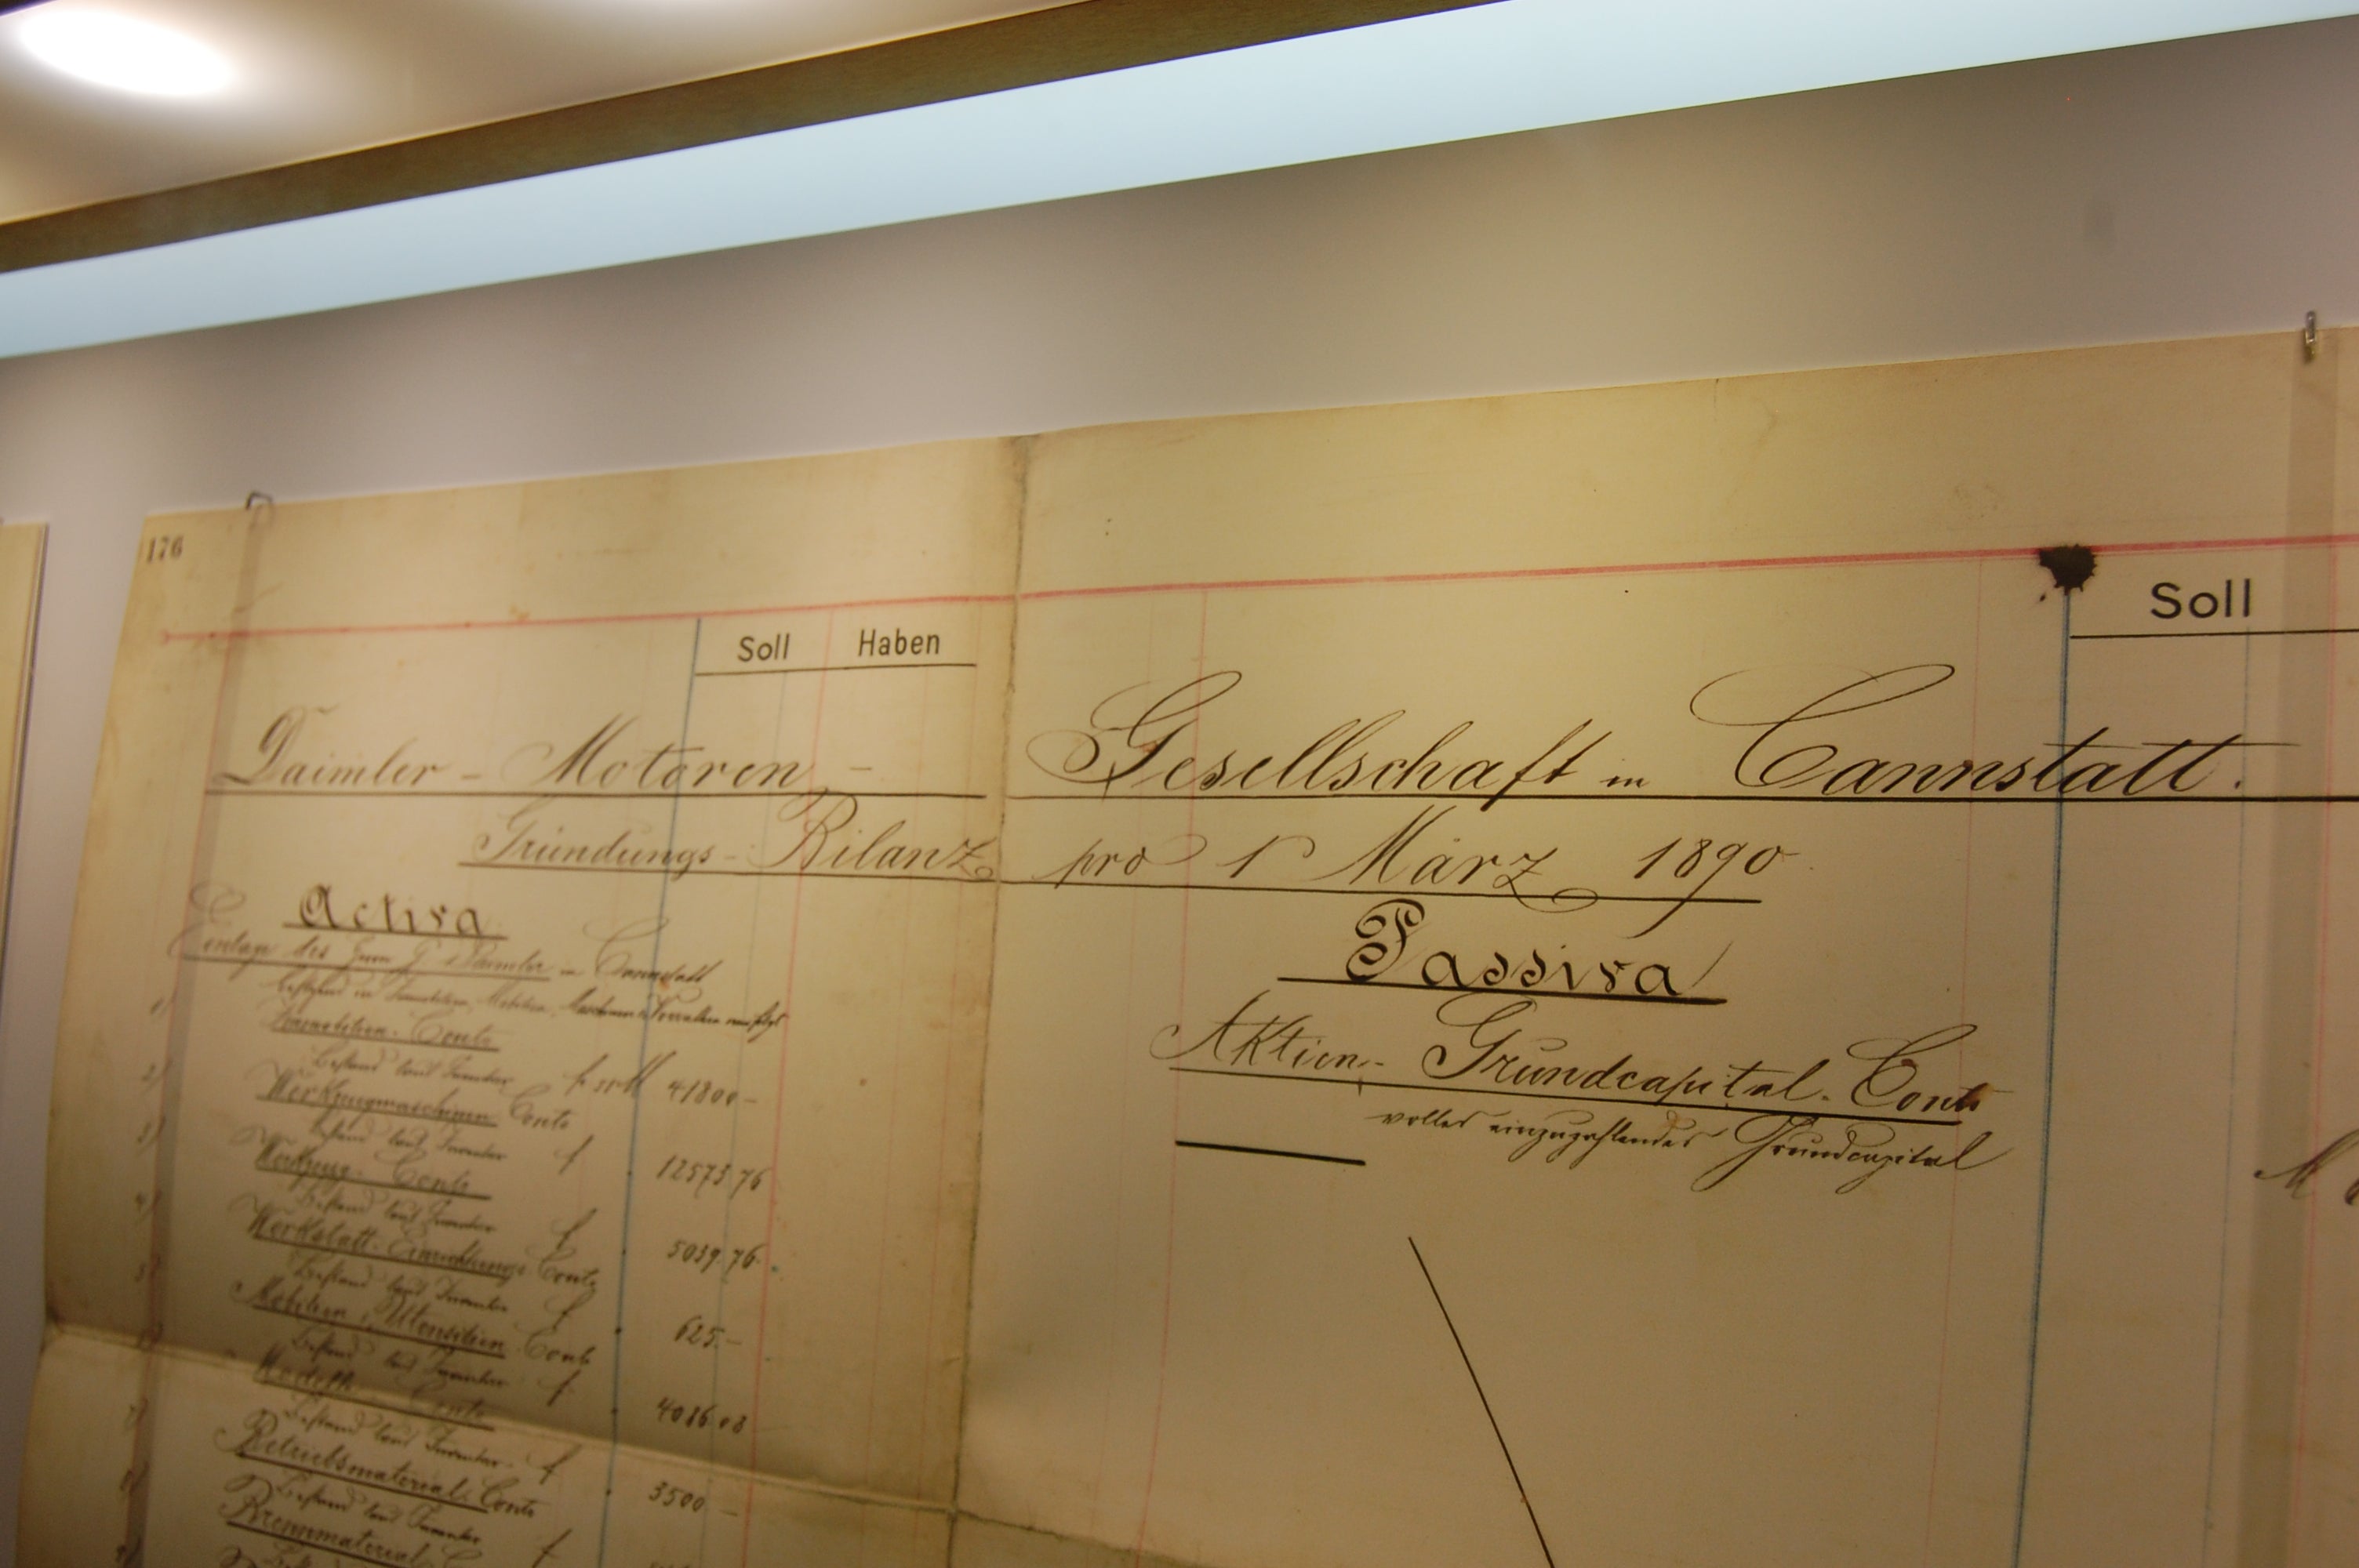 176
Soll Haben
Soll
Daimler - Motoren - Gesellschaft in Cannstatt.
Gründungs - Bilanz pro 1 März 1890
Activa
Einlage des Herrn G. Daimler in Cannstatt
bestehend in Immobilien, Mobilien, Maschinen & Vorräthen wie folgt
1) Immobilien-Conto
Bestand laut Inventar 41800 -
2) Werkzeugmaschinen Conto
Bestand laut Inventar 12573.76
3) Werkzeug-Conto
Bestand laut Inventar 5039.76
4) Werkstatt-Einrichtungs Conto
Bestand laut Inventar 625.-
5) Mobilien & Utensilien Conto
Bestand laut Inventar 4086.03
Modell Conto
Bestand laut Inventar 3500 -
7) Betriebsmaterial-Conto
Bestand laut Inventar
8) Brennmaterial
Passiva
Aktien - Grundcapital - Conto
volles einzuzahlendes Grundcapital
M